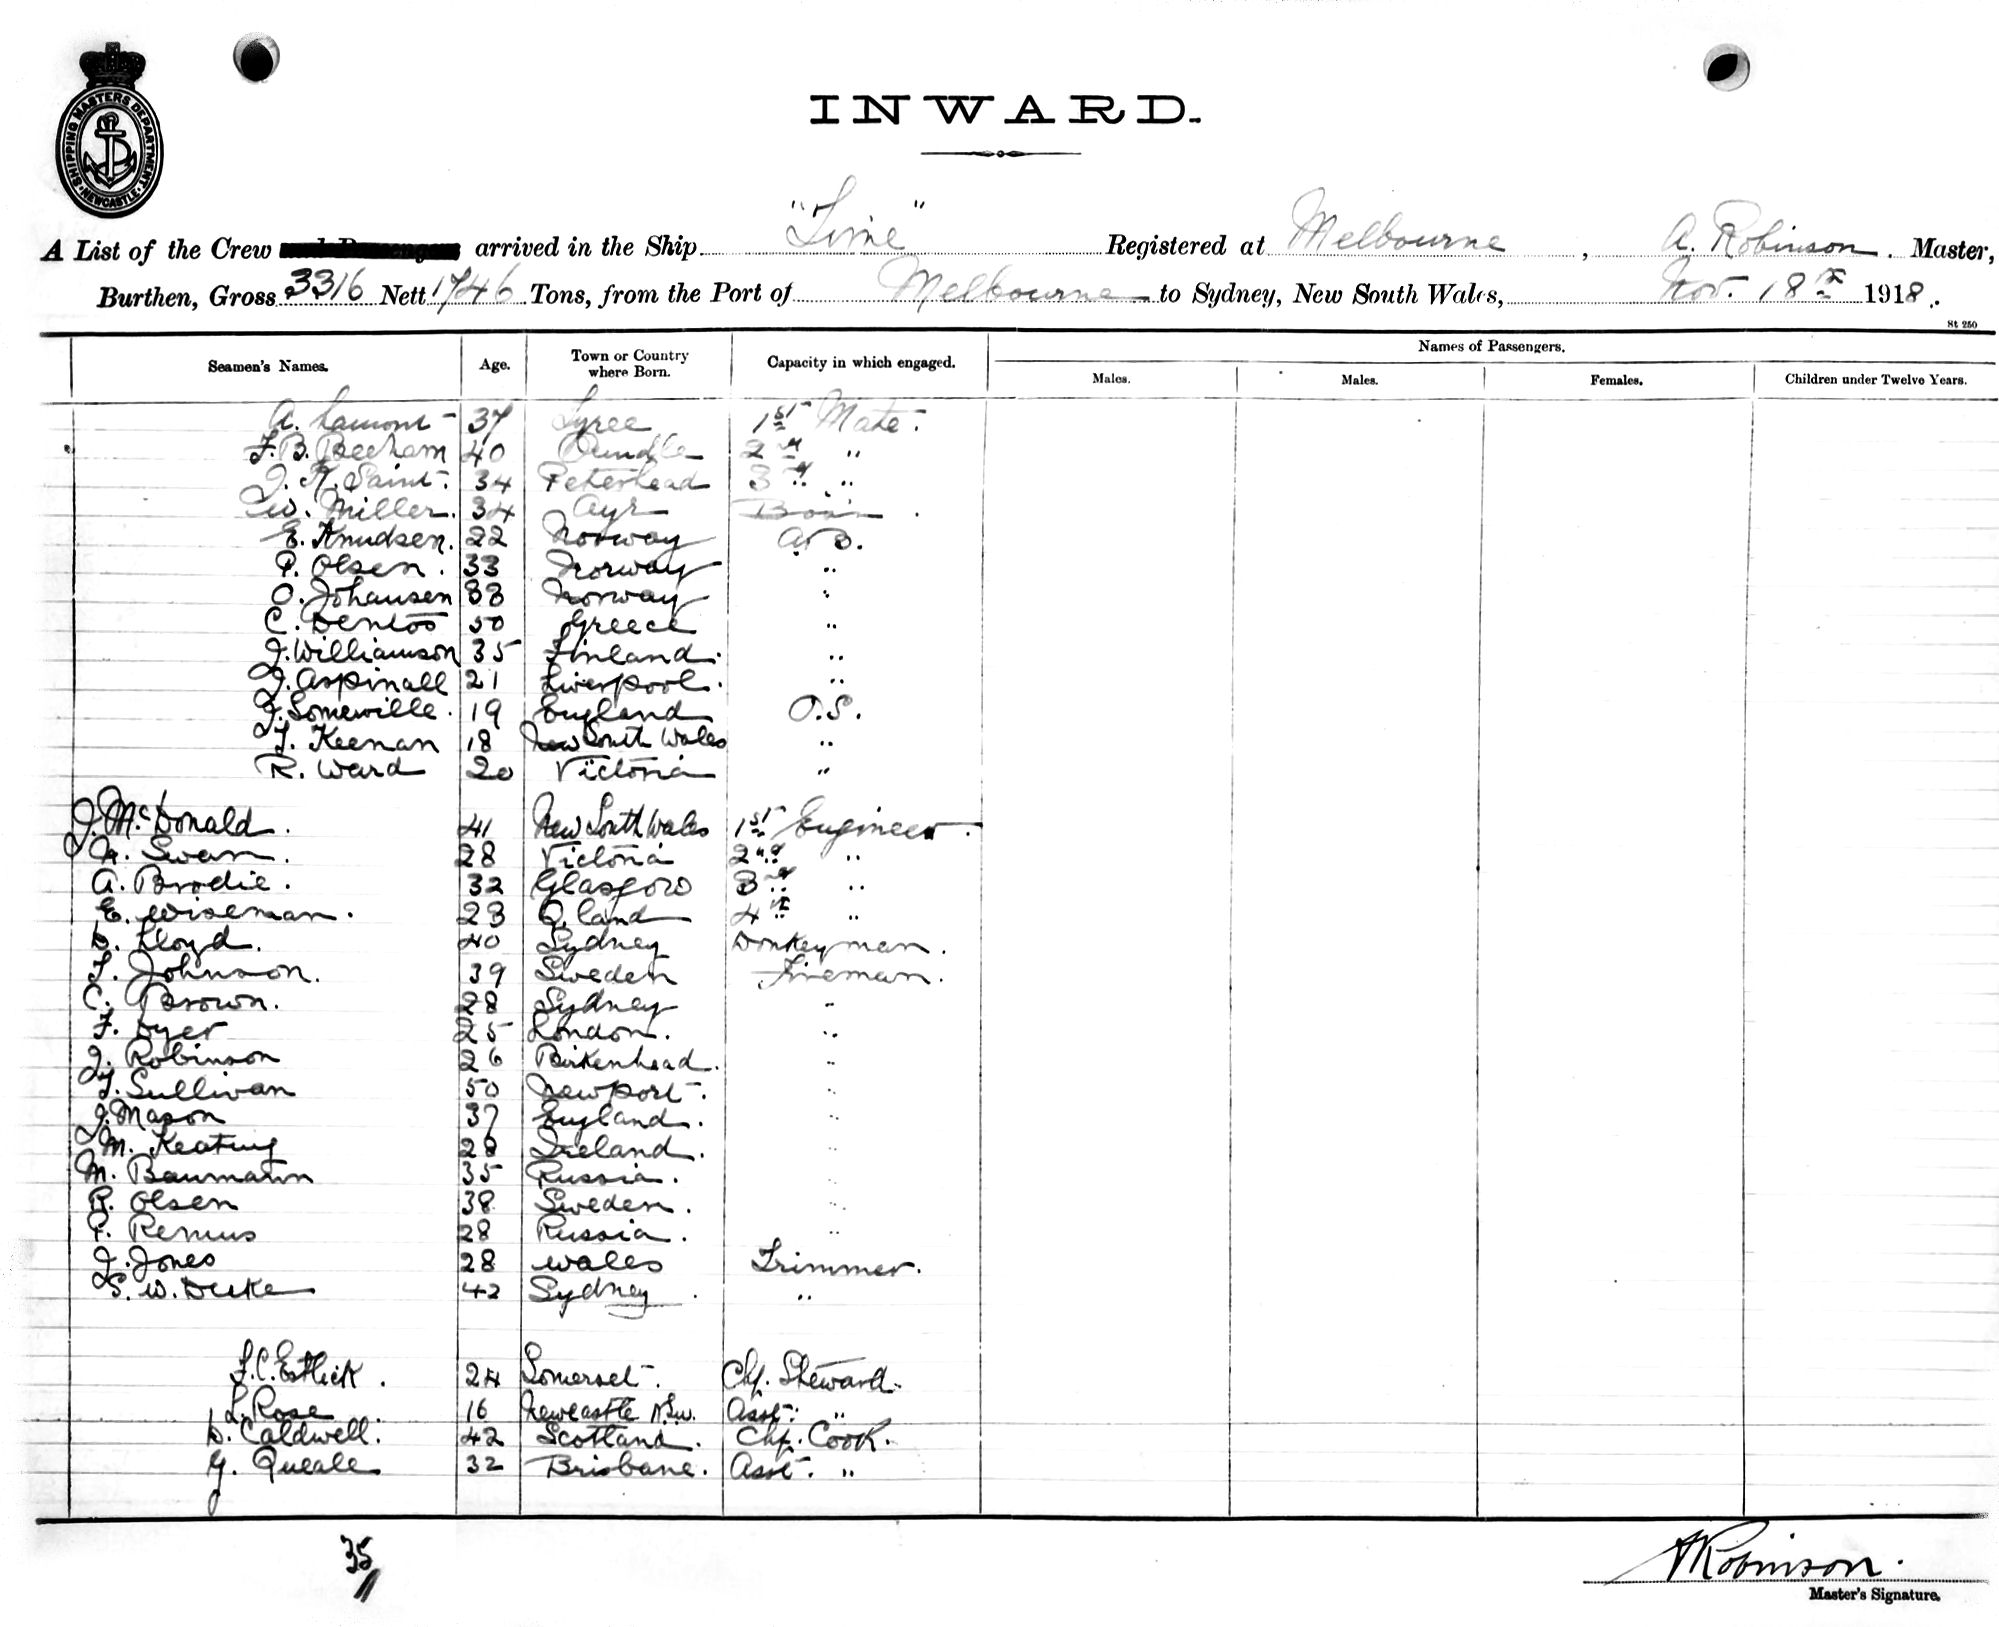 SHIPPING MASTERS DEPARTMENT. NEWCASTLE
INWARD.
A List of the Crew arrived in the Ship "Time" Registered at Melbourne, A. Robinson. Master,
Burthen, Gross 3316 Nett 1746 Tons, from the Port of Melbourne to Sydney, New South Wales, Nov. 18th 1918.
St 250
Seamen's Names. Age. Town or Country where Born. Capacity in which engaged. Names of Passengers.
Males. Males. Females. Children under Twelve Years.
A. Lamont 37 Tyree 1st Mate.
F. B. Beecham 40 Oundle 2nd "
J. R. Saint. 34 Peterhead 3rd "
W. Miller. 34 Ayr Bosn.
E. Knudsen. 22 Norway A.B.
P. Olsen. 33 Norway "
O. Johansen 33 Norway "
C. Dentos 50 Greece "
J. Williamson 35 Finland. "
J. Aspinall 21 Liverpool. "
J. Somerville. 19 England O.S.
T. Keenan 18 New South Wales "
R. Ward 20 Victoria "
J. McDonald. 41 New South Wales 1st Engineer.
Swan. 28 Victoria 2nd "
A. Brodie. 32 Glasgow 3rd "
E. Wiseman. 23 Q.land 4th "
D. Lloyd. 40 Sydney Donkeyman.
T. Johnson. 39 Sweden Fireman.
C. Brown. 28 Sydney "
F. Dyer 25 London. "
J. Robinson 26 Birkenhead. "
T. Sullivan 50 Newport. "
J. Mason 37 England. "
M. Keating 28 Ireland. "
M. Baumann 35 Russia. "
R. Olsen 38 Sweden. "
P. Remus 28 Russia. "
J. Jones 28 Wales Trimmer.
S. W. Duke 42 Sydney. "
F. C. Estlick. 24 Somerset. Chf. Steward.
L. Rose 16 Newcastle N.S.W. Asst. "
D. Caldwell. 42 Scotland. Chf. Cook.
G. Queale 32 Brisbane. Asst. "
35
A Robinson.
Master's Signature.